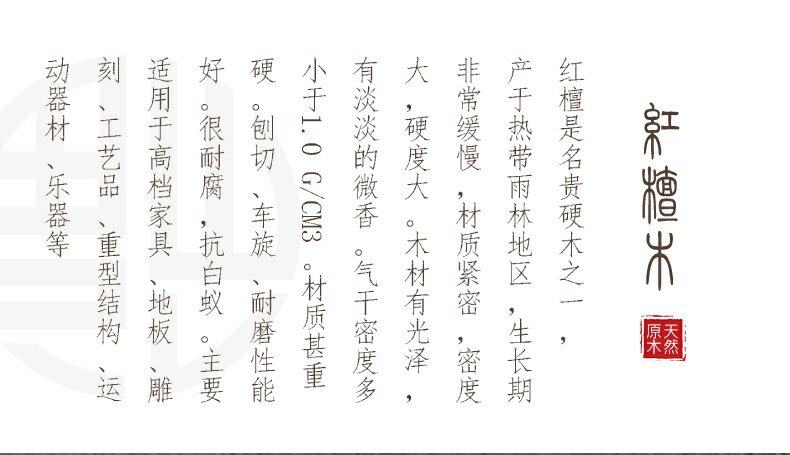 紅檀木
天然
原木
红檀是名贵硬木之一，
产于热带雨林地区，生长期
非常缓慢，材质紧密，密度
大，硬度大。木材有光泽，
有淡淡的微香。气干密度多
小于1.0 G/CM3 。材质甚重
硬。刨切、车旋、耐磨性能
好。很耐腐，抗白蚁。主要
适用于高档家具、地板、雕
刻、工艺品、重型结构、运
动器材、乐器等